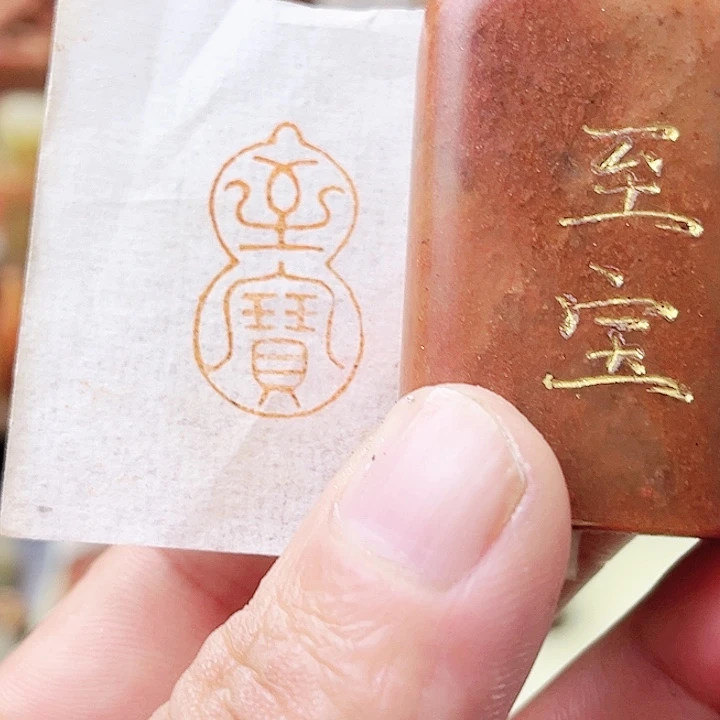 至
寶
至
宝